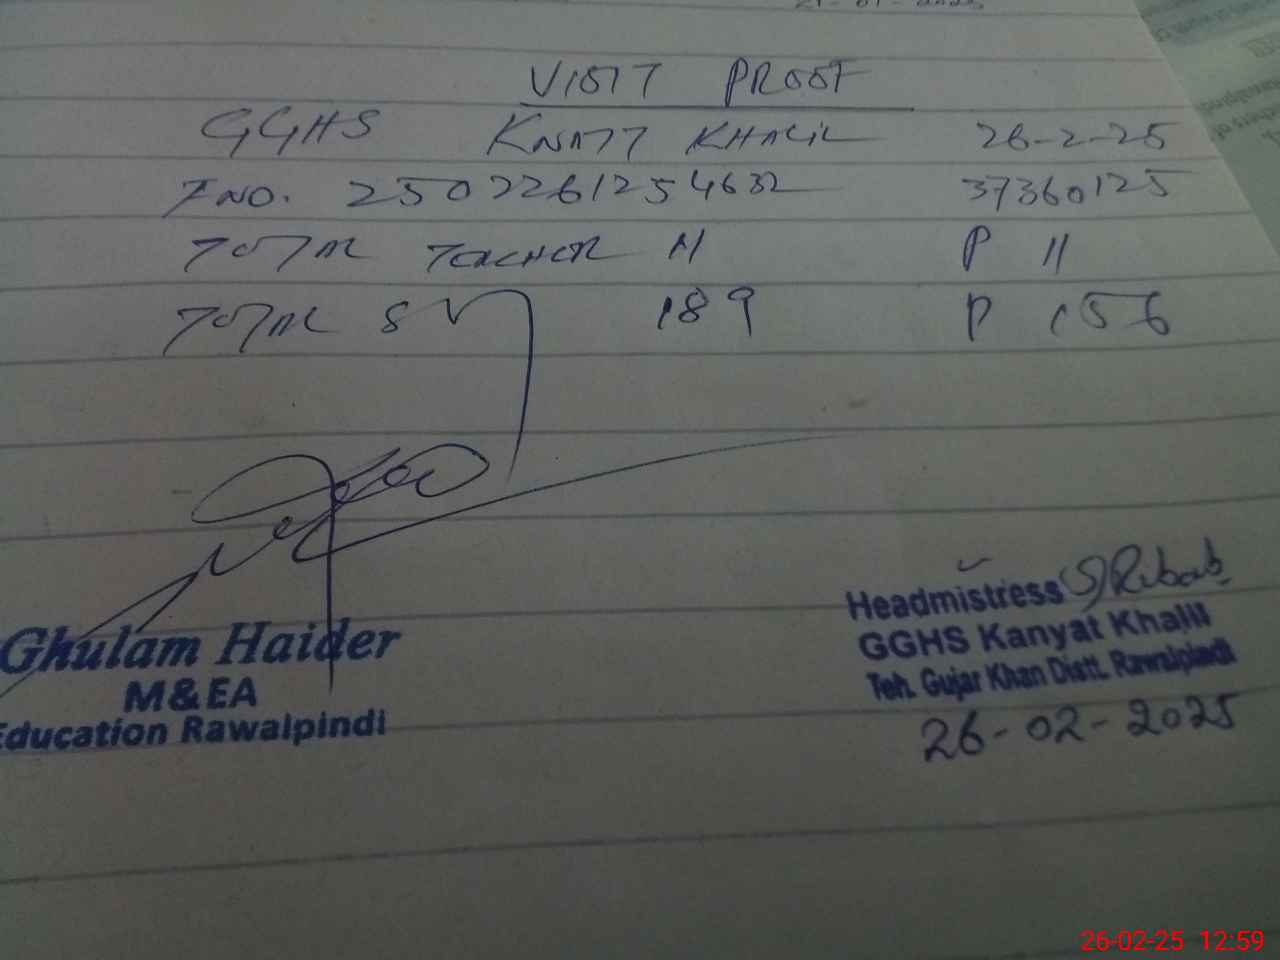 VISIT PROOF
GGHS KNATT KHALIL 26-2-25
F NO. 2502261254632 37360125
TOTAL TEACHER 11 P 11
TOTAL ST 189 P 156
Ghulam Haider
M&EA
Education Rawalpindi
Headmistress
GGHS Kanyat Khalil
Teh. Gujar Khan Distt. Rawalpindi
26-02-2025
26-02-25 12:59